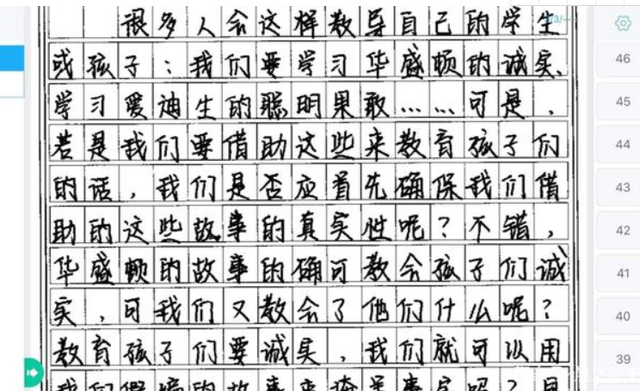 很多人会这样教导自己的学生
46
或孩子：我们要学习华盛顿的诚实、
45
学习爱迪生的聪明果敢……可是，
44
若是我们要借助这些来教育孩子们
43
的话，我们是否应首先确保我们借
42
助的这些故事的真实性呢？不错，
41
华盛顿的故事的确可教会孩子们诚
40
实，可我们又教会了他们什么呢？
39
教育孩子们要诚实，我们就可以用